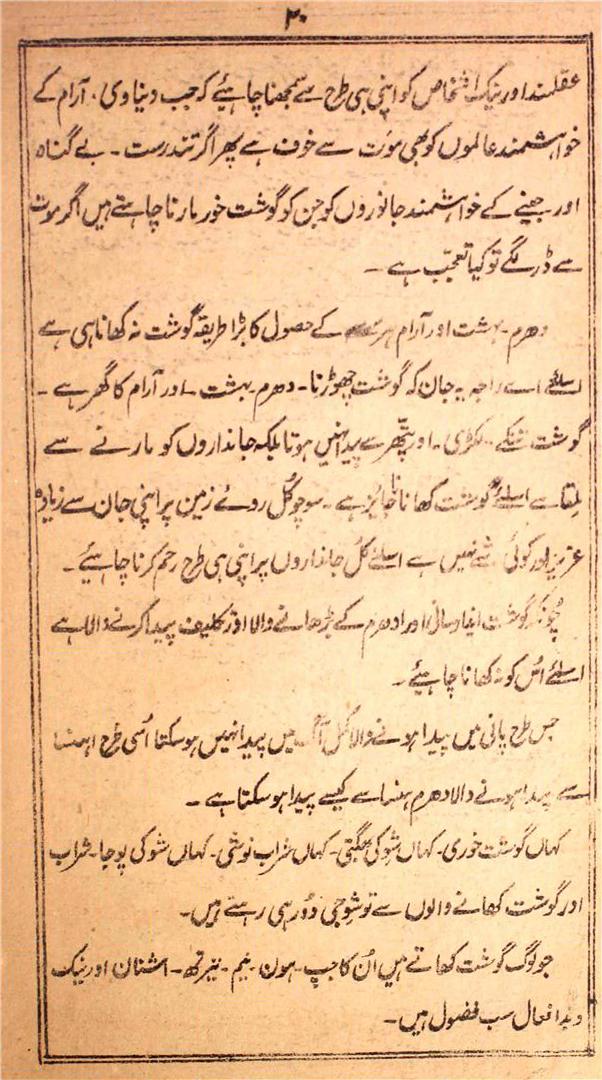 ۳۰
عقلمند اور نیک اشخاص کو اپنی ہی طرح سے سمجھنا چاہیئے کہ جب دیناوی ۔ آرام کے
خواہشمند عالموں کو بھی موت سے خوف ہے پھر اگر تندرست ۔ بے گناہ
اور جینے کے خواہشمند جانوروں کو جن کو گوشت خور مارنا چاہتے ہیں اگر موت
سے ڈر لگے تو کیا تعجب ہے ۔
دھرم ۔ بہشت اور آرام کے حصول کا بڑا طریقہ گوشت نہ کھانا ہی ہے
اسلئے اے راجہ یہ جان کہ گوشت چھوڑنا ۔ دھرم ۔ بہشت ۔ اور آرام کا گھر ہے ۔
گوشت تنکے ۔ لکڑی ۔ اور پتھر سے پیدا نہیں ہوتا بلکہ جانداروں کو مارنے سے
ملتا ہے اسلئے گوشت کھانا ناجائز ہے ۔ سوچو کُل روئے زمین پر اپنی جان سے زیادہ
عزیز اور کوئی شے نہیں ہے اسلئے کُل جانداروں پر اپنی ہی طرح رحم کرنا چاہیئے ۔
چونکہ گوشت ایذا رسانی اور ادھرم کے بڑھانے والا اور تکلیف پیدا کرنے والا ہے
اسلئے اُس کو نہ کھانا چاہیئے ۔
جس طرح پانی میں پیدا ہونے والا گل آگ میں پیدا نہیں ہو سکتا اُسی طرح اہنسا
سے پیدا ہونے والا دھرم ہنسا سے کیسے پیدا ہو سکتا ہے ۔
کہاں گوشت خوری ۔ کہاں شو کی بھگتی ۔ کہاں شراب نوشی ۔ کہاں شو کی پوجا ۔ شراب
اور گوشت کھانے والوں سے تو شوجی دُور ہی رہتے ہیں ۔
جو لوگ گوشت کھاتے ہیں اُن کا جپ ۔ ہون ۔ نیم ۔ تیرتھ ۔ اشنان اور نیک
و بد افعال سب فضول ہیں ۔